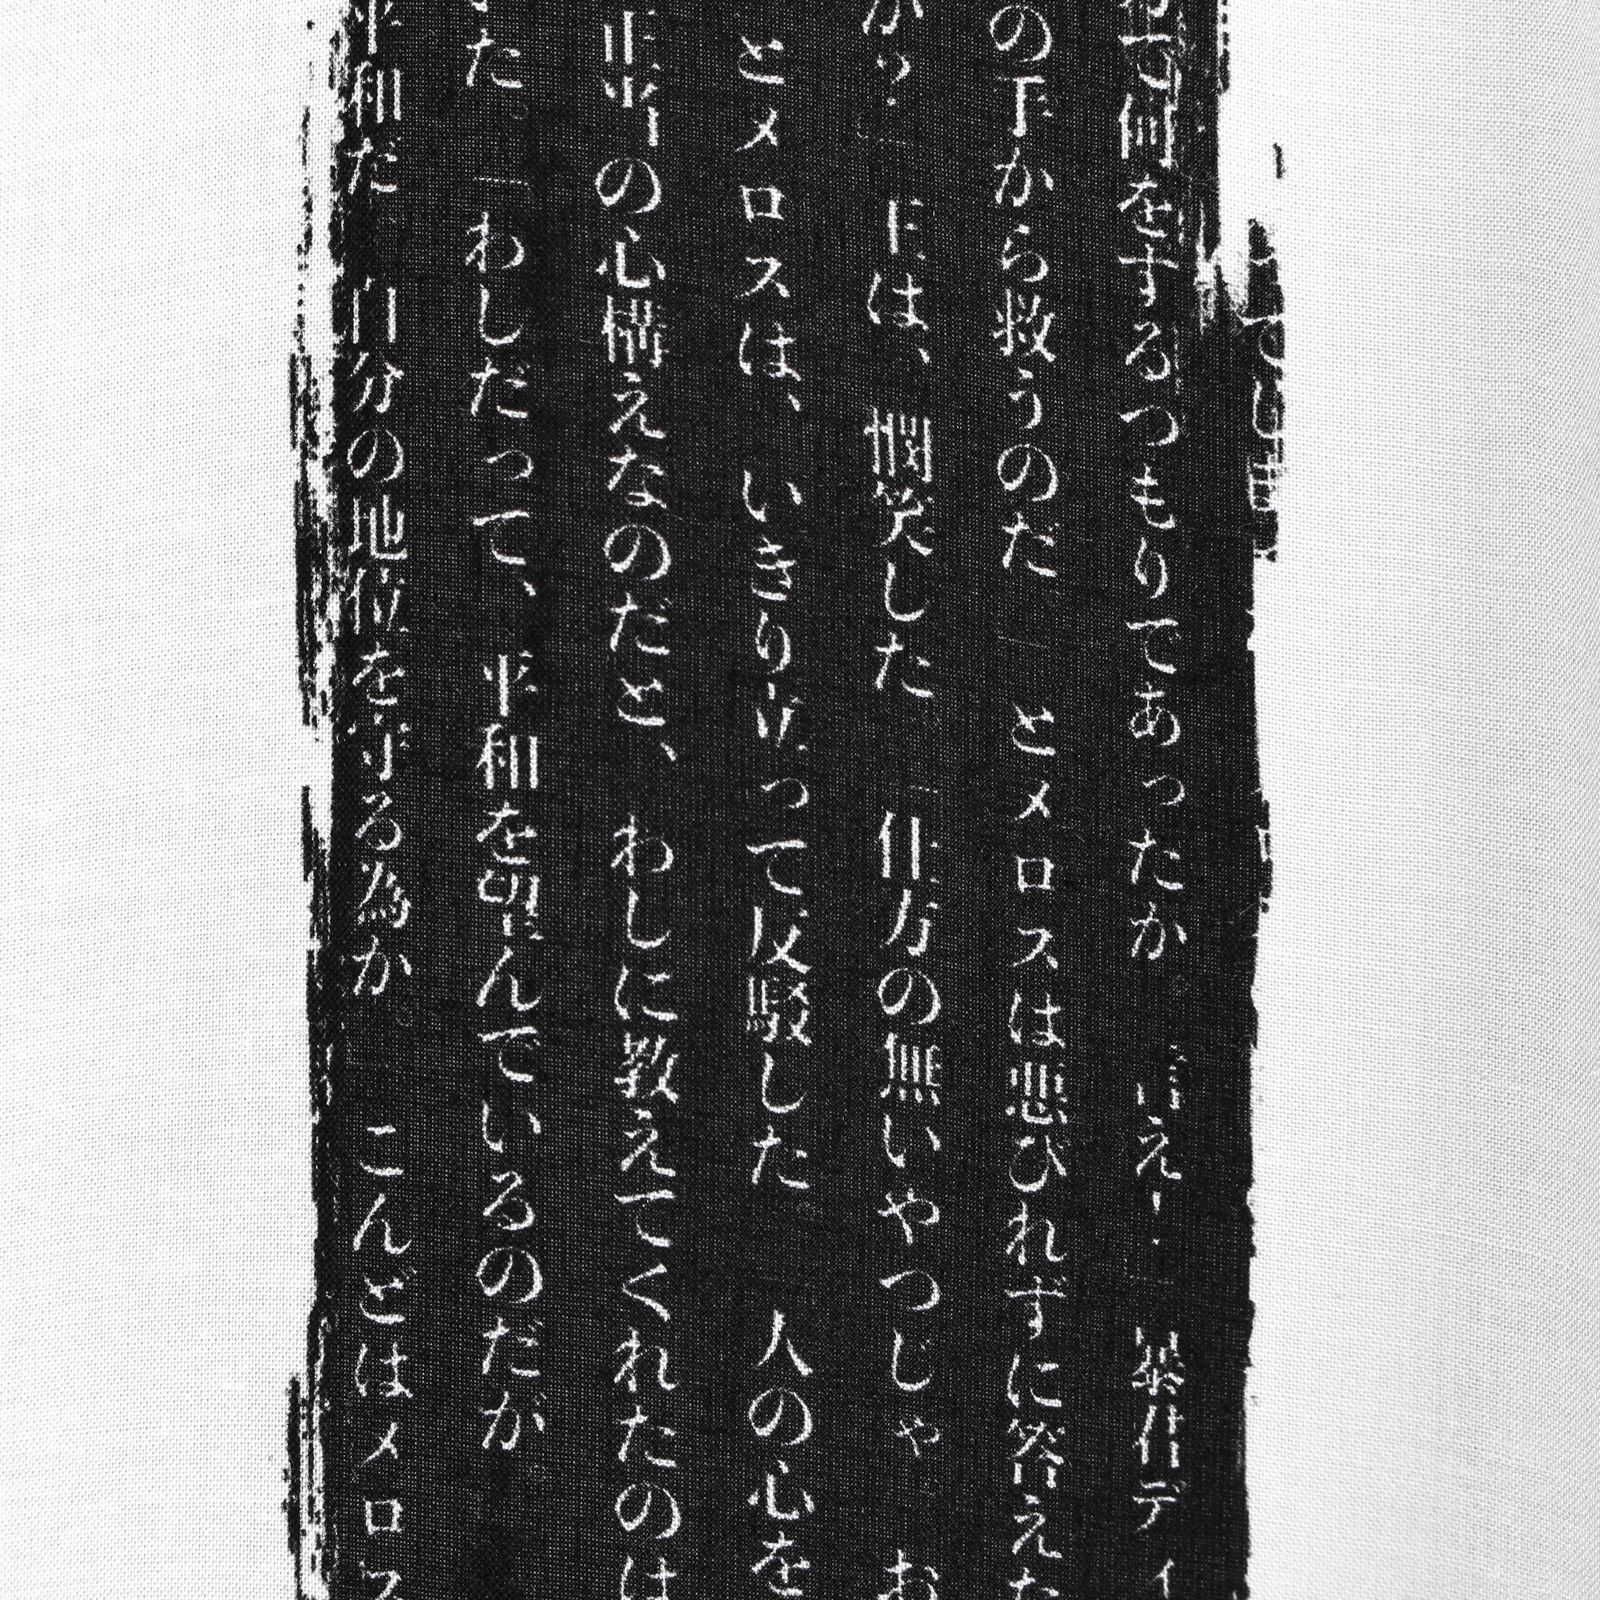 で何をするつもりであったか。言え！」暴君ディ
の手から救うのだ。」とメロスは悪びれずに答えた
か？」王は、憫笑した。「仕方の無いやつじゃ。お
とメロスは、いきり立って反駁した。「人の心を
正当の心構えなのだと、わしに教えてくれたのは
た。「わしだって、平和を望んでいるのだが
平和だ。自分の地位を守る為か。」こんどはメロス